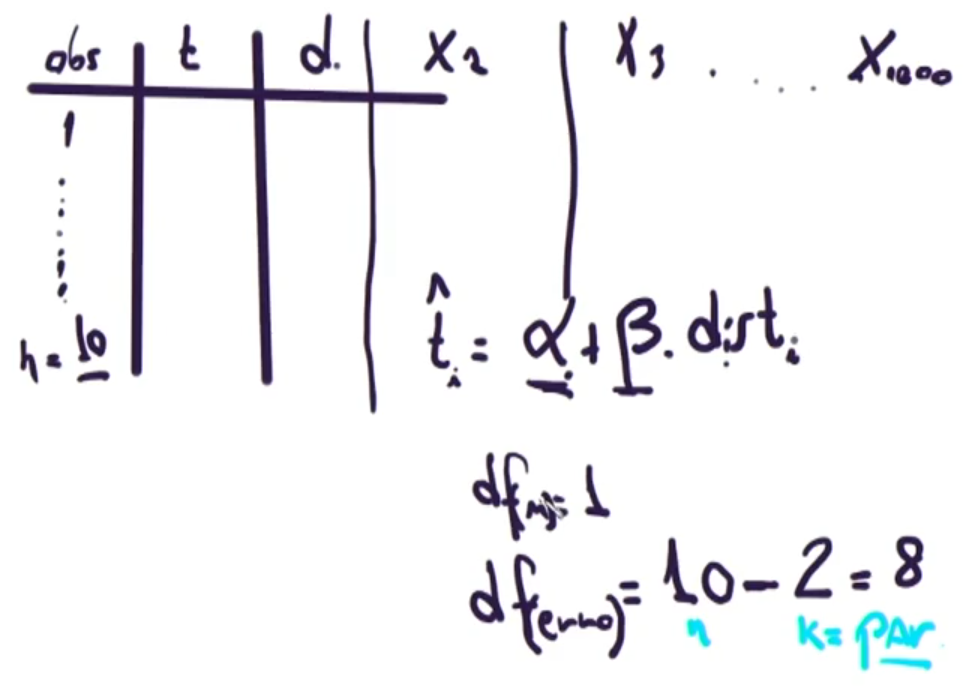 obs t d. X₂ X₃ . . . . . X₁₀₀₀
1
n = 10
t̂ᵢ = α + β . distᵢ
df = 1
df(erro) = 10 - 2 = 8
n k = par.